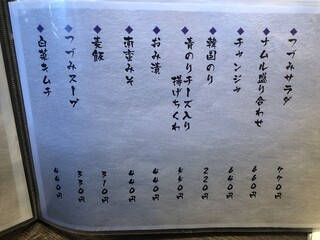 つづみサラダ 770円
ナムル盛り合わせ 660円
チャンジャ 640円
韓国のり 220円
青のりチーズ入り
揚げちくわ 440円
おみ漬 440円
南蛮みそ 440円
麦飯 310円
つづみスープ 330円
白菜キムチ 440円